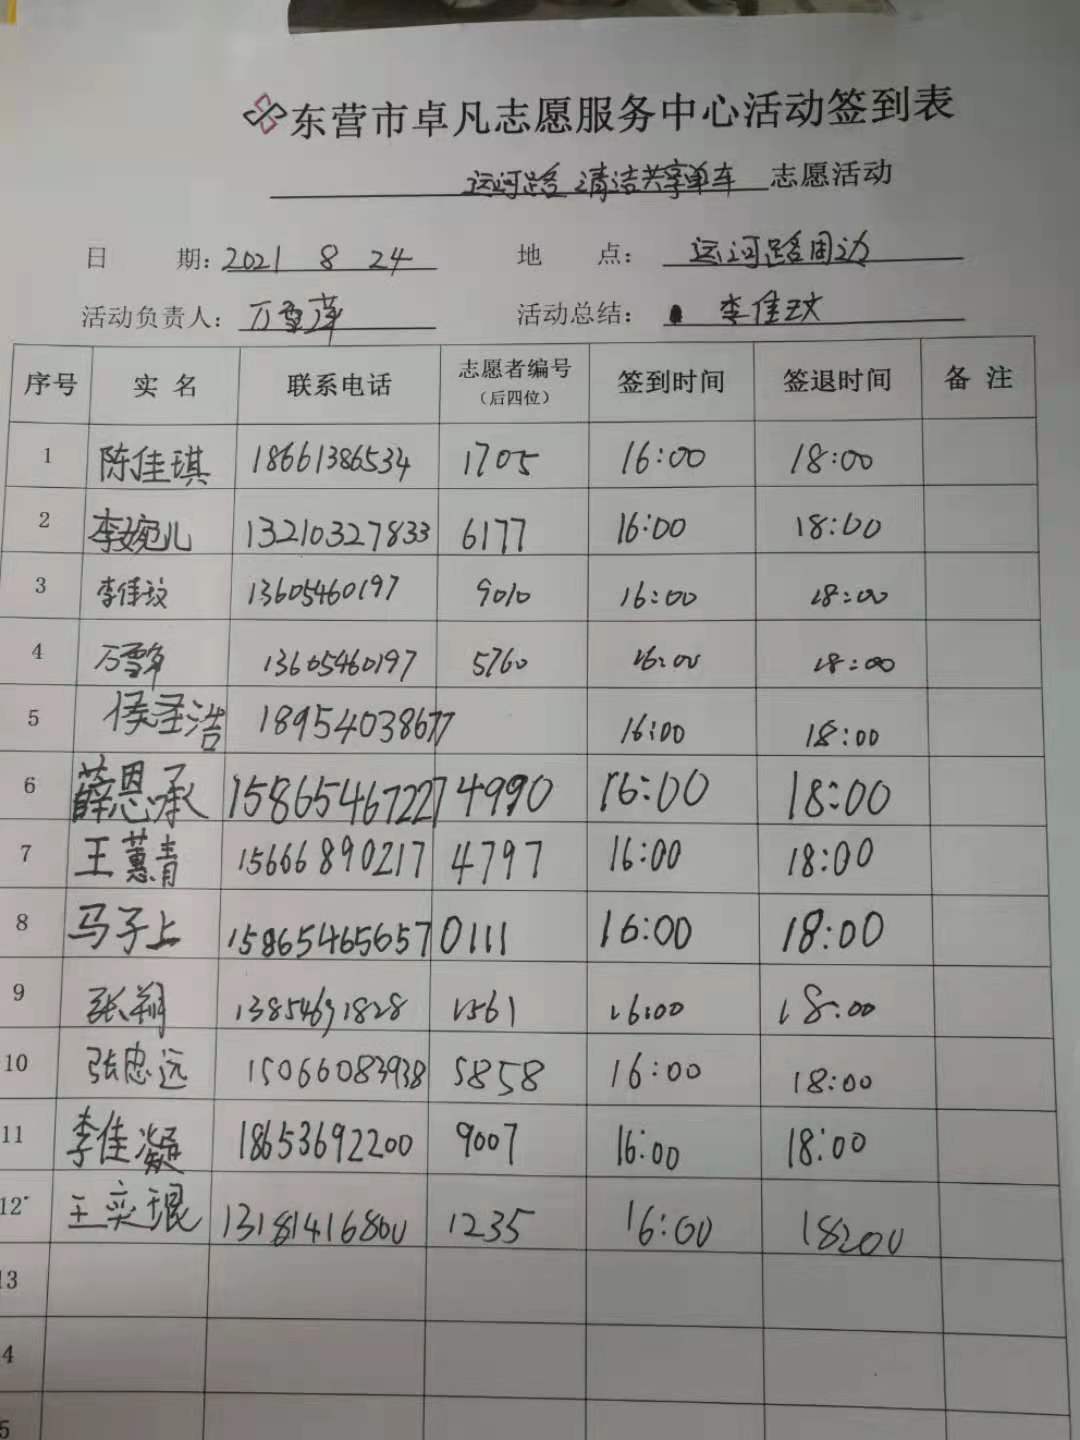 东营市卓凡志愿服务中心活动签到表
运河路 清洁共享单车 志愿活动
日 期: 2021 8 24 地 点: 运河路周边
活动负责人: 万雪萍 活动总结: 李佳玟
序号 实名 联系电话 志愿者编号(后四位) 签到时间 签退时间 备注
1 陈佳琪 18661386534 1705 16:00 18:00
2 李婉儿 13210327833 6177 16:00 18:00
3 李佳玟 13605460197 9010 16:00 18:00
4 13605460197 5760 16:00 18:00
5 侯圣浩 18954038677 16:00 18:00
6 薛恩承 15865467227 4990 16:00 18:00
7 王蕙青 15666890217 4797 16:00 18:00
8 马子上 15865465657 0111 16:00 18:00
9 张朔 13854691828 1561 16:00 18:00
10 张忠远 15066083938 5858 16:00 18:00
11 李佳凝 18653692200 9007 16:00 18:00
12 王奕琨 13181416800 1235 16:00 18:00
13
4
5